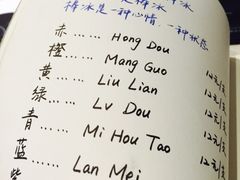 棒冰是一种心情，一种状态
赤…… Hong Dou 12元/支
橙…… Mang Guo 12元/支
黄…… Liu Lian 12元/支
绿…… Lv Dou 12元/支
青…… Mi Hou Tao 12元/支
蓝…… Lan Mei
紫